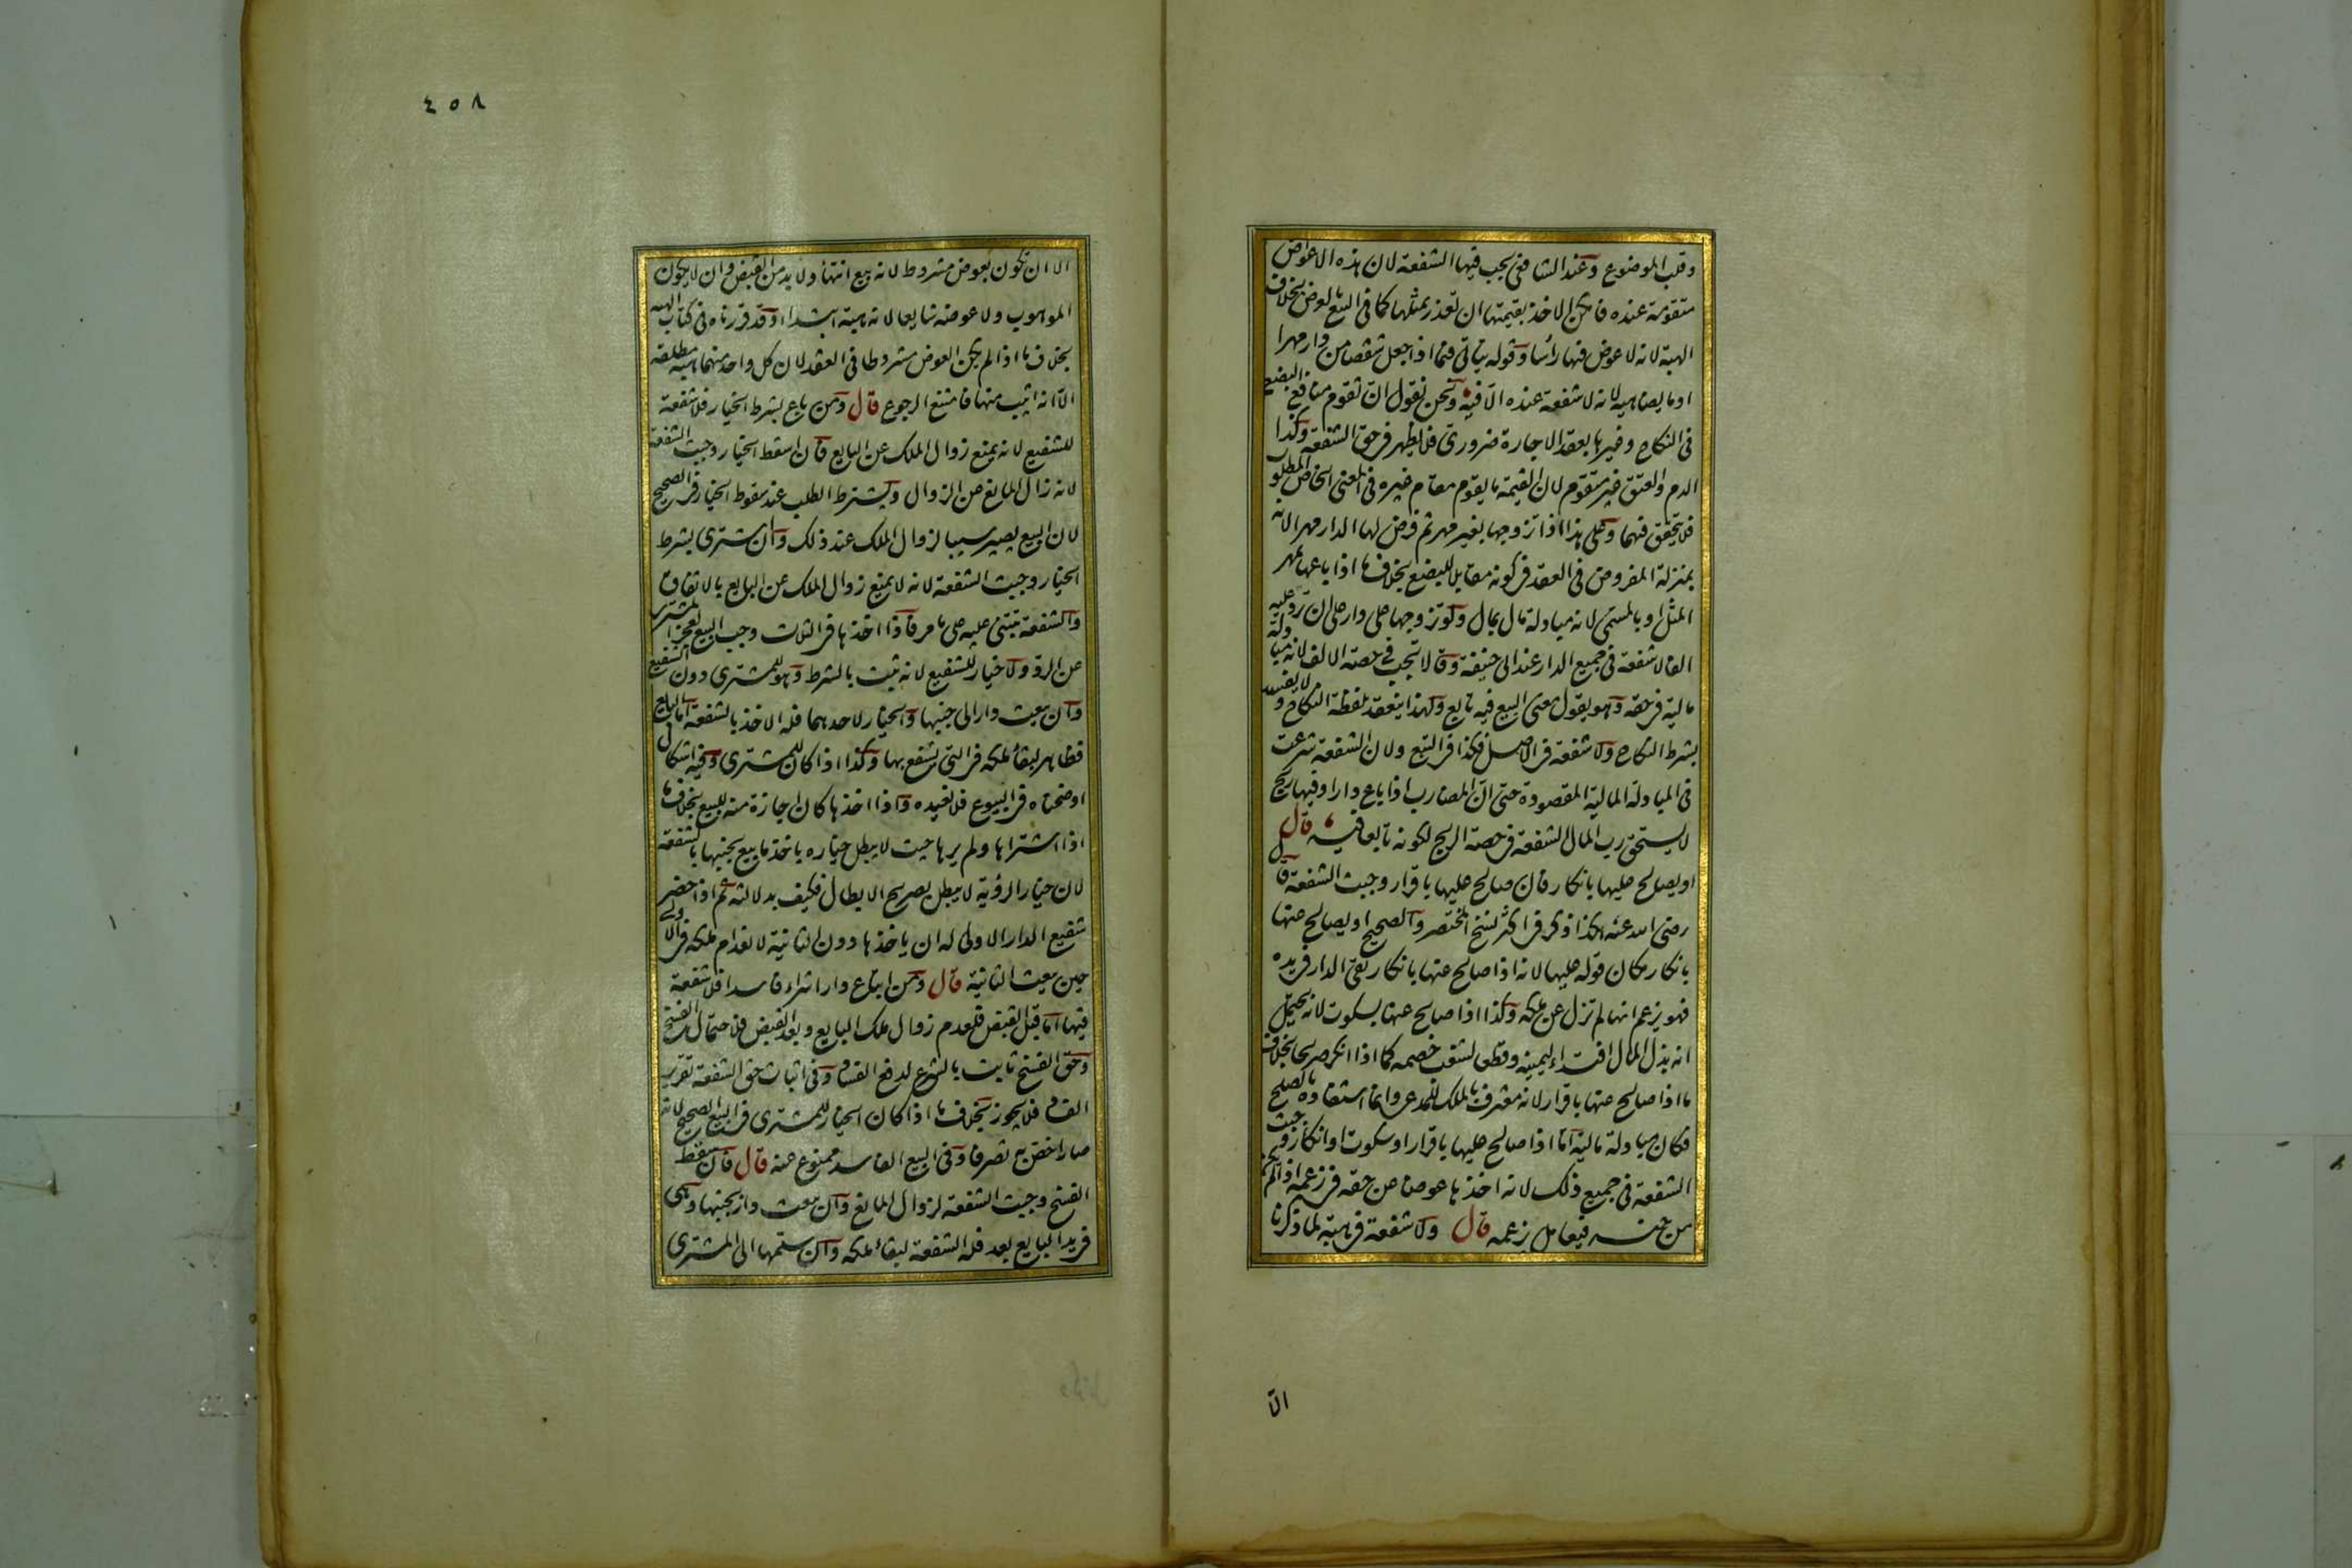 وقلب الموضوع وعند الشافعي يجب فيها الشفعة لان هذه الاعواض
متقومة عنده فامكن الاخذ بقيمتها ان تعذر بمثلها كما في البيع بالعرض بخلاف
الهبة لانه لا عوض فيها رأسا وقوله يتأتى فيما اذا جعل شقصا من دار مهرا
او ما يضاهيه لانه لا شفعة عنده الا فيه ونحن نقول ان تقوم منافع البضع
في النكاح وغيرها بعقد الاجارة ضروري فلا يظهر في حق الشفعة وكذا
الدم والعتق غير متقوم لان القيمة ما يقوم مقام غيره في المعنى الخاص المطلوب
فلا يتحقق فيهما وعلى هذا اذا تزوجها بغير مهر ثم فرض لها الدار مهرا لانه
بمنزلة المفروض في العقد في كونه مقابلا للبضع بخلاف ما اذا باعها بمهر
المثل او بالمسمى لانه مبادلة مال بمال ولو تزوجها على دار على ان ترد عليه
الفا لا شفعة في جميع الدار عند ابي حنيفة وقالا تجب في حصة الالف لانه مبادلة
مالية في حقه وهو يقول معنى البيع فيه تابع ولهذا ينعقد بلفظة النكاح ولا يفسد
بشرط النكاح ولا شفعة في الاصل فكذا في التبع ولان الشفعة شرعت
في المبادلة المالية المقصودة حتى ان المضارب اذا باع دارا وفيها ربح
لا يستحق رب المال الشفعة في حصة الربح لكونه تابعا فيه قال
او يصالح عليها بانكار فان صالح عليها باقرار وجبت الشفعة قال
رضي الله عنه هكذا ذكر في اكثر نسخ المختصر والصحيح او يصالح عنها
بانكار مكان قوله عليها لانه اذا صالح عنها بانكار بقي الدار في يده
فهو يزعم انها لم تزل عن ملكه وكذا اذا صالح عنها بسكوت لانه يحتمل
انه بذل المال افتداء ليمينه وقطعا لشغب خصمه كما اذا انكر صريحا بخلاف
ما اذا صالح عنها باقرار لانه معترف بالملك للمدعي وانما استفاده بالصلح
فكان مبادلة مالية اما اذا صالح عليها باقرار او سكوت او انكار وجبت
الشفعة في جميع ذلك لانه اخذها عوضا عن حقه في زعمه اذا لم يكن
من جنسه فيعامل بزعمه قال ولا شفعة في هبة لما ذكرنا
الا
٤٥٨
الا ان تكون بعوض مشروط لانه بيع انتهاء ولا بد من القبض وان لا يكون
الموهوب ولا عوضه شايعا لانه هبة ابتداء وقد قررناه في كتاب الهبة
بخلاف ما اذا لم يكن العوض مشروطا في العقد لان كل واحد منهما هبة مطلقة
الا انه اثيب منها فامتنع الرجوع قال ومن باع بشرط الخيار فلا شفعة
للشفيع لانه يمنع زوال الملك عن البايع فان اسقط الخيار وجبت الشفعة
لانه زال المانع عن الزوال ويشترط الطلب عند سقوط الخيار في الصحيح
لان البيع يصير سببا لزوال الملك عند ذلك وان اشترى بشرط
الخيار وجبت الشفعة لانه لا يمنع زوال الملك عن البايع بالاتفاق
والشفعة تبتني عليه على ما مر فاذا اخذها في الثلث وجب البيع لعجز المشتري
عن الرد ولا خيار للشفيع لانه ثبت بالشرط وهو للمشتري دون الشفيع
وان بيعت دار الى جنبها والخيار لاحدهما فله الاخذ بالشفعة اما البايع
فظاهر لبقاء ملكه في التي يشفع بها وكذا اذا كان للمشتري وفيه اشكال
اوضحناه في البيوع فلا نعيده واذا اخذها كان اجازة منه للبيع بخلاف ما
اذا اشتراها ولم يرها حيث لا يبطل خياره باخذ ما بيع بجنبها بالشفعة
لان خيار الرؤية لا يبطل بصريح الابطال فكيف بدلالته ثم اذا حضر
شفيع الدار الاولى له ان ياخذها دون الثانية لانعدام ملكه في الاولى
حين بيعت الثانية قال ومن ابتاع دارا شراء فاسدا فلا شفعة
فيها اما قبل القبض فلعدم زوال ملك البايع وبعد القبض فلاحتمال الفسخ
وحق الفسخ ثابت بالشرع لدفع الفساد وفي اثبات حق الشفعة تقرير
الفساد فلا يجوز بخلاف ما اذا كان الخيار للمشتري في البيع الصحيح لانه
صار اخص به تصرفا وفي البيع الفاسد ممنوع عنه قال فان سقط
الفسخ وجبت الشفعة لزوال المانع وان بيعت دار بجنبها وهي
في يد البايع بعد فله الشفعة لبقاء ملكه وان سلمها الى المشتري